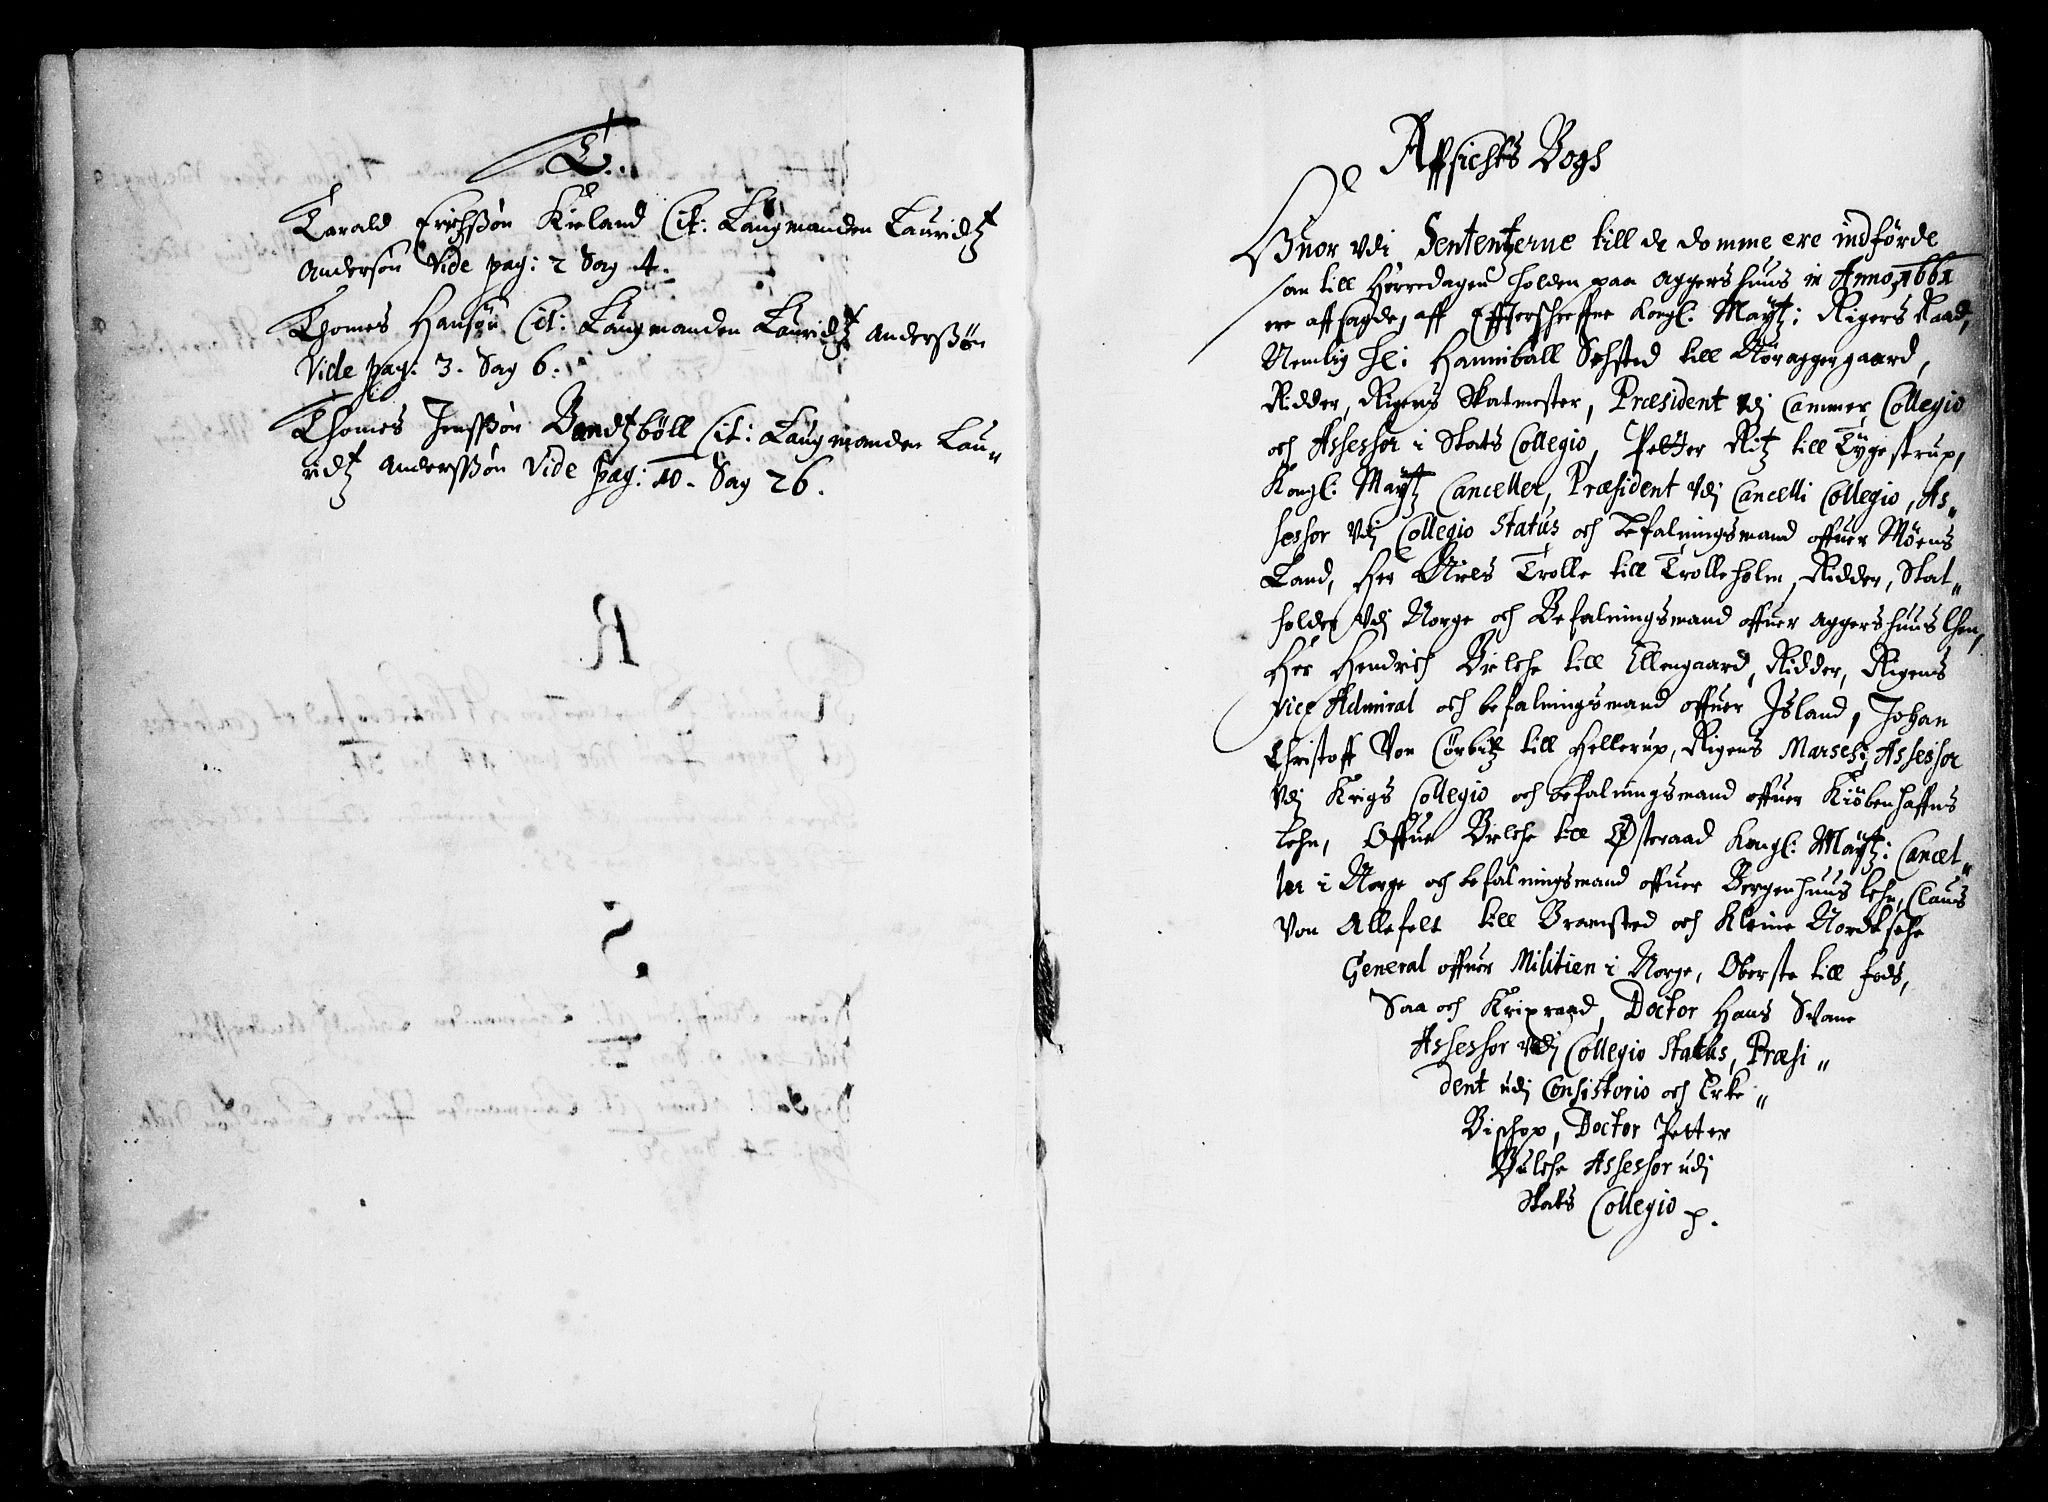 T.
Tarald Erichsßøn Kieland Cit: Laugmanden Lauridtz
Anderson Vide pag: 2 Sag 4.
Thomes Hansøn Cit: Laugmanden Lauridtz Andersßøn
Vide pag: 3. Sag 6.
Thomes Jensßøn Bandtzbøll Cit: Laugmanden Lau„
ridtz Andersßøn Vide pag: 10. Sag 26.
Affsichts Bogh
Huor vdi Sententzerne till de domme ere indförde
som till Herredagen holden paa Aggershuus in Anno 1661
ere aff sagde, aff Effterschreffne Kongl: Maytz: Rigers Raad,
Nemlig Hl: Hanniball Sehsted till Nøraggergaard,
Ridder, Rigens Skatmester, Præsident vdj Cammer Collegio
och Assessor i Stats Collegio, Petter Ritz till Tygestrup,
Kongl: Maytz Canceller, Præsident vdj Cancelli Collegio, As„
sessor vdj Collegio Status och befalningsmand offuer Møens
Land, Her Niels Trolle till Trolleholm, Ridder, Stat„
holder vdj Norge och Befalningsmand offuer Aggershuus Lhen,
Her Hendrich Bielche till Ellengaard, Ridder, Rigens
Vice Admiral och befalningsmand offuer Jsland, Johan
Christoff Von Cørbitz till Hellerup, Rigens Marsch: Assessor
vdj Krigs Collegio och befalningsmand offuer Kiøbenhaffns
Lehn, Offue Bielche till Østeraad Kongl: Maytz: Cancel„
ler i Norge och befalningsmand offuer Bergenhuus Lehn, Claus
Von Allefelt till Bramsted och Kleine Nordsehe
General offuer Militien i Norge, Oberste till fods,
Saa och Krigsraad, Doctor Hans Svane
Assessor vdj Collegio Status, Præsi„
dent udj Consistorio och Erke„
Bischop, Doctor Petter
Bulche Assessor udj
Stats Collegio p.